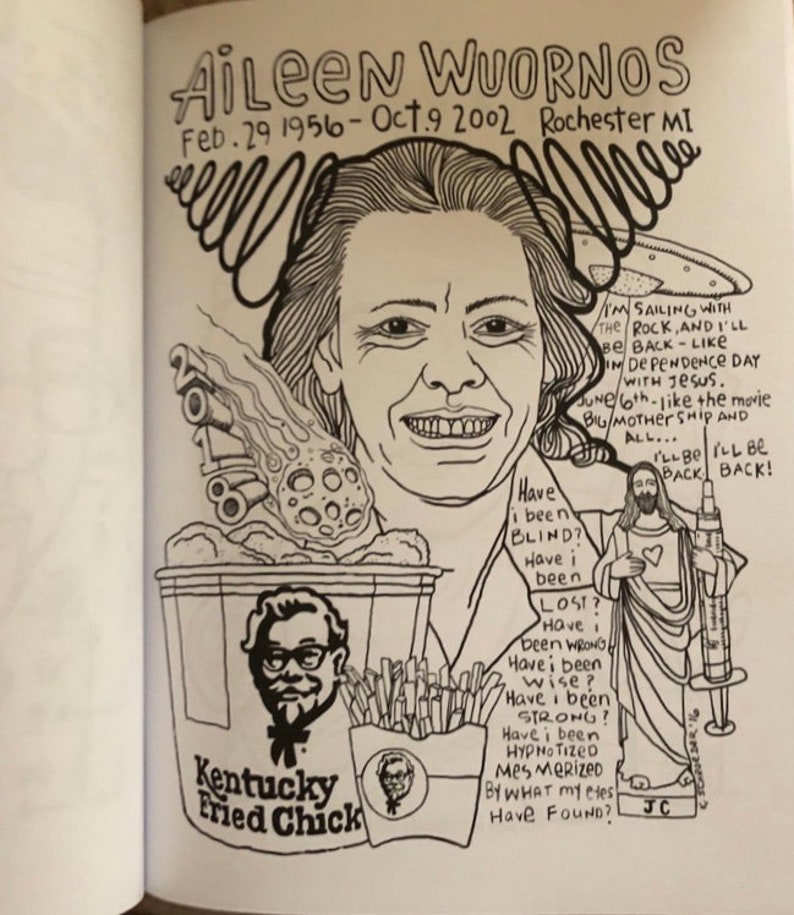 AiLeeN WUORNOS
Feb. 29 1956 - Oct. 9 2002 Rochester MI
I'M SAILING WITH
THE ROCK, AND I'LL
Be BACK - LIKe
INDePeNDeNCe DAY
WITH JeSUS.
JUNe 6th - Like the movie
BIG MOTHerSHIP AND
ALL...
I'LL Be
BACK
I'LL Be
BACK!
2018
Have
i been
BLIND?
Have i
been
LOST?
Have i
been WRONG
Have i been
WISe?
Have i been
STRONG?
Have i been
HYPNOTIZED
MeSMeRIZED
BY WHAT my eyes
Have FOUND?
Kentucky
Fried Chick
JC
K. SCHROEDER '16